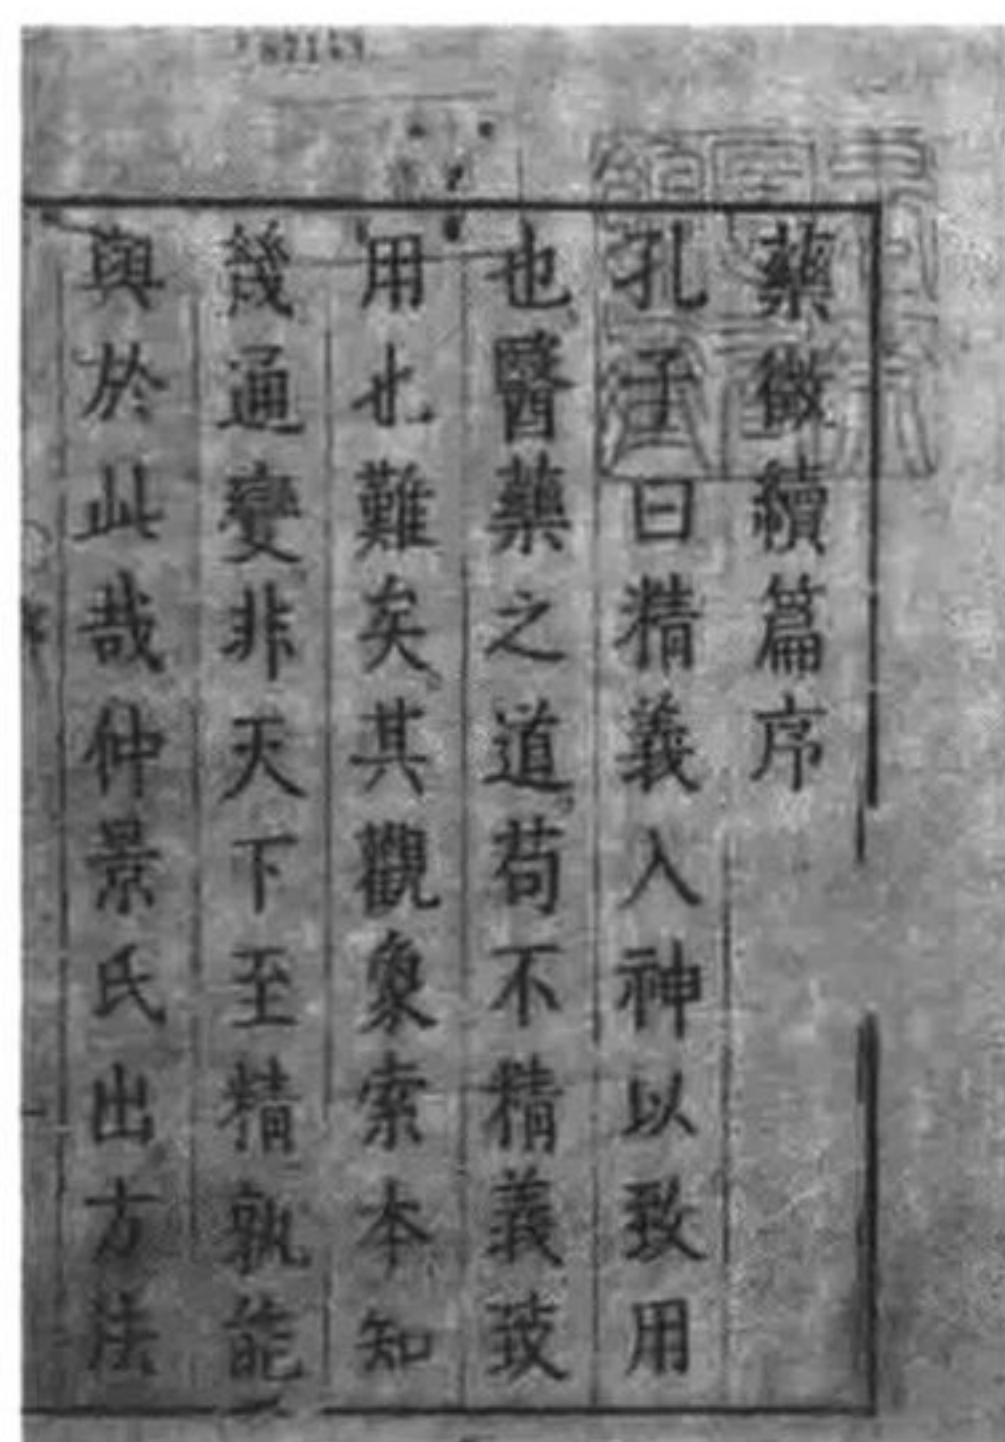 藥徵續篇序
孔子曰精義入神以致用
也醫藥之道苟不精義致
用也難矣其觀象索本知
幾通變非天下至精孰能
與於此哉仲景氏出方法